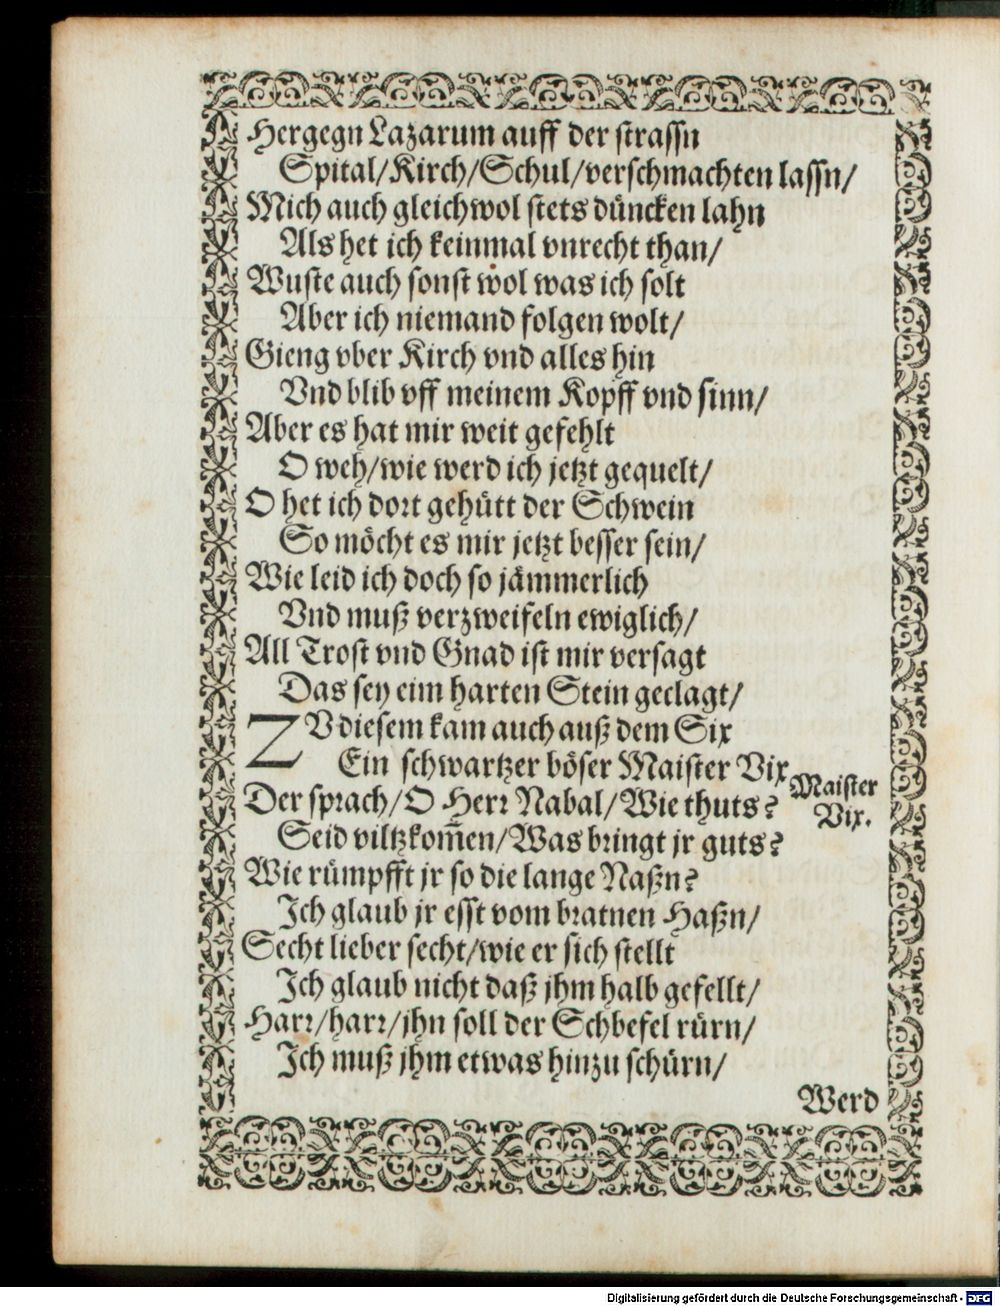 Hergegn Lazarum auff der strassn
Spital/Kirch/Schul/verschmachten lassn/
Mich auch gleichwol stets düncken lahn
Als het ich keinmal vnrecht than/
Wuste auch sonst wol was ich solt
Aber ich niemand folgen wolt/
Gieng vber Kirch vnd alles hin
Vnd blib vff meinem Kopff vnd sinn/
Aber es hat mir weit gefehlt
O weh/wie werd ich jetzt gequelt/
O het ich dort gehütt der Schwein
So möcht es mir jetzt besser sein/
Wie leid ich doch so jämmerlich
Vnd muß verzweifeln ewiglich/
All Trost vnd Gnad ist mir versagt
Das sey eim harten Stein geclagt/
ZV diesem kam auch auß dem Six
Ein schwartzer böser Maister Vix
Maister
Vix.
Der sprach/O Herr Nabal/Wie thuts?
Seid viltzkom̃en/Was bringt jr guts?
Wie rümpfft jr so die lange Naßn?
Ich glaub jr esst vom bratnen Haßn/
Secht lieber secht/wie er sich stellt
Ich glaub nicht daß jhm halb gefellt/
Harr/harr/jhn soll der Schbefel rürn/
Ich muß jhm etwas hinzu schürn/
Werd
Digitalisierung gefördert durch die Deutsche Forschungsgemeinschaft - DFG